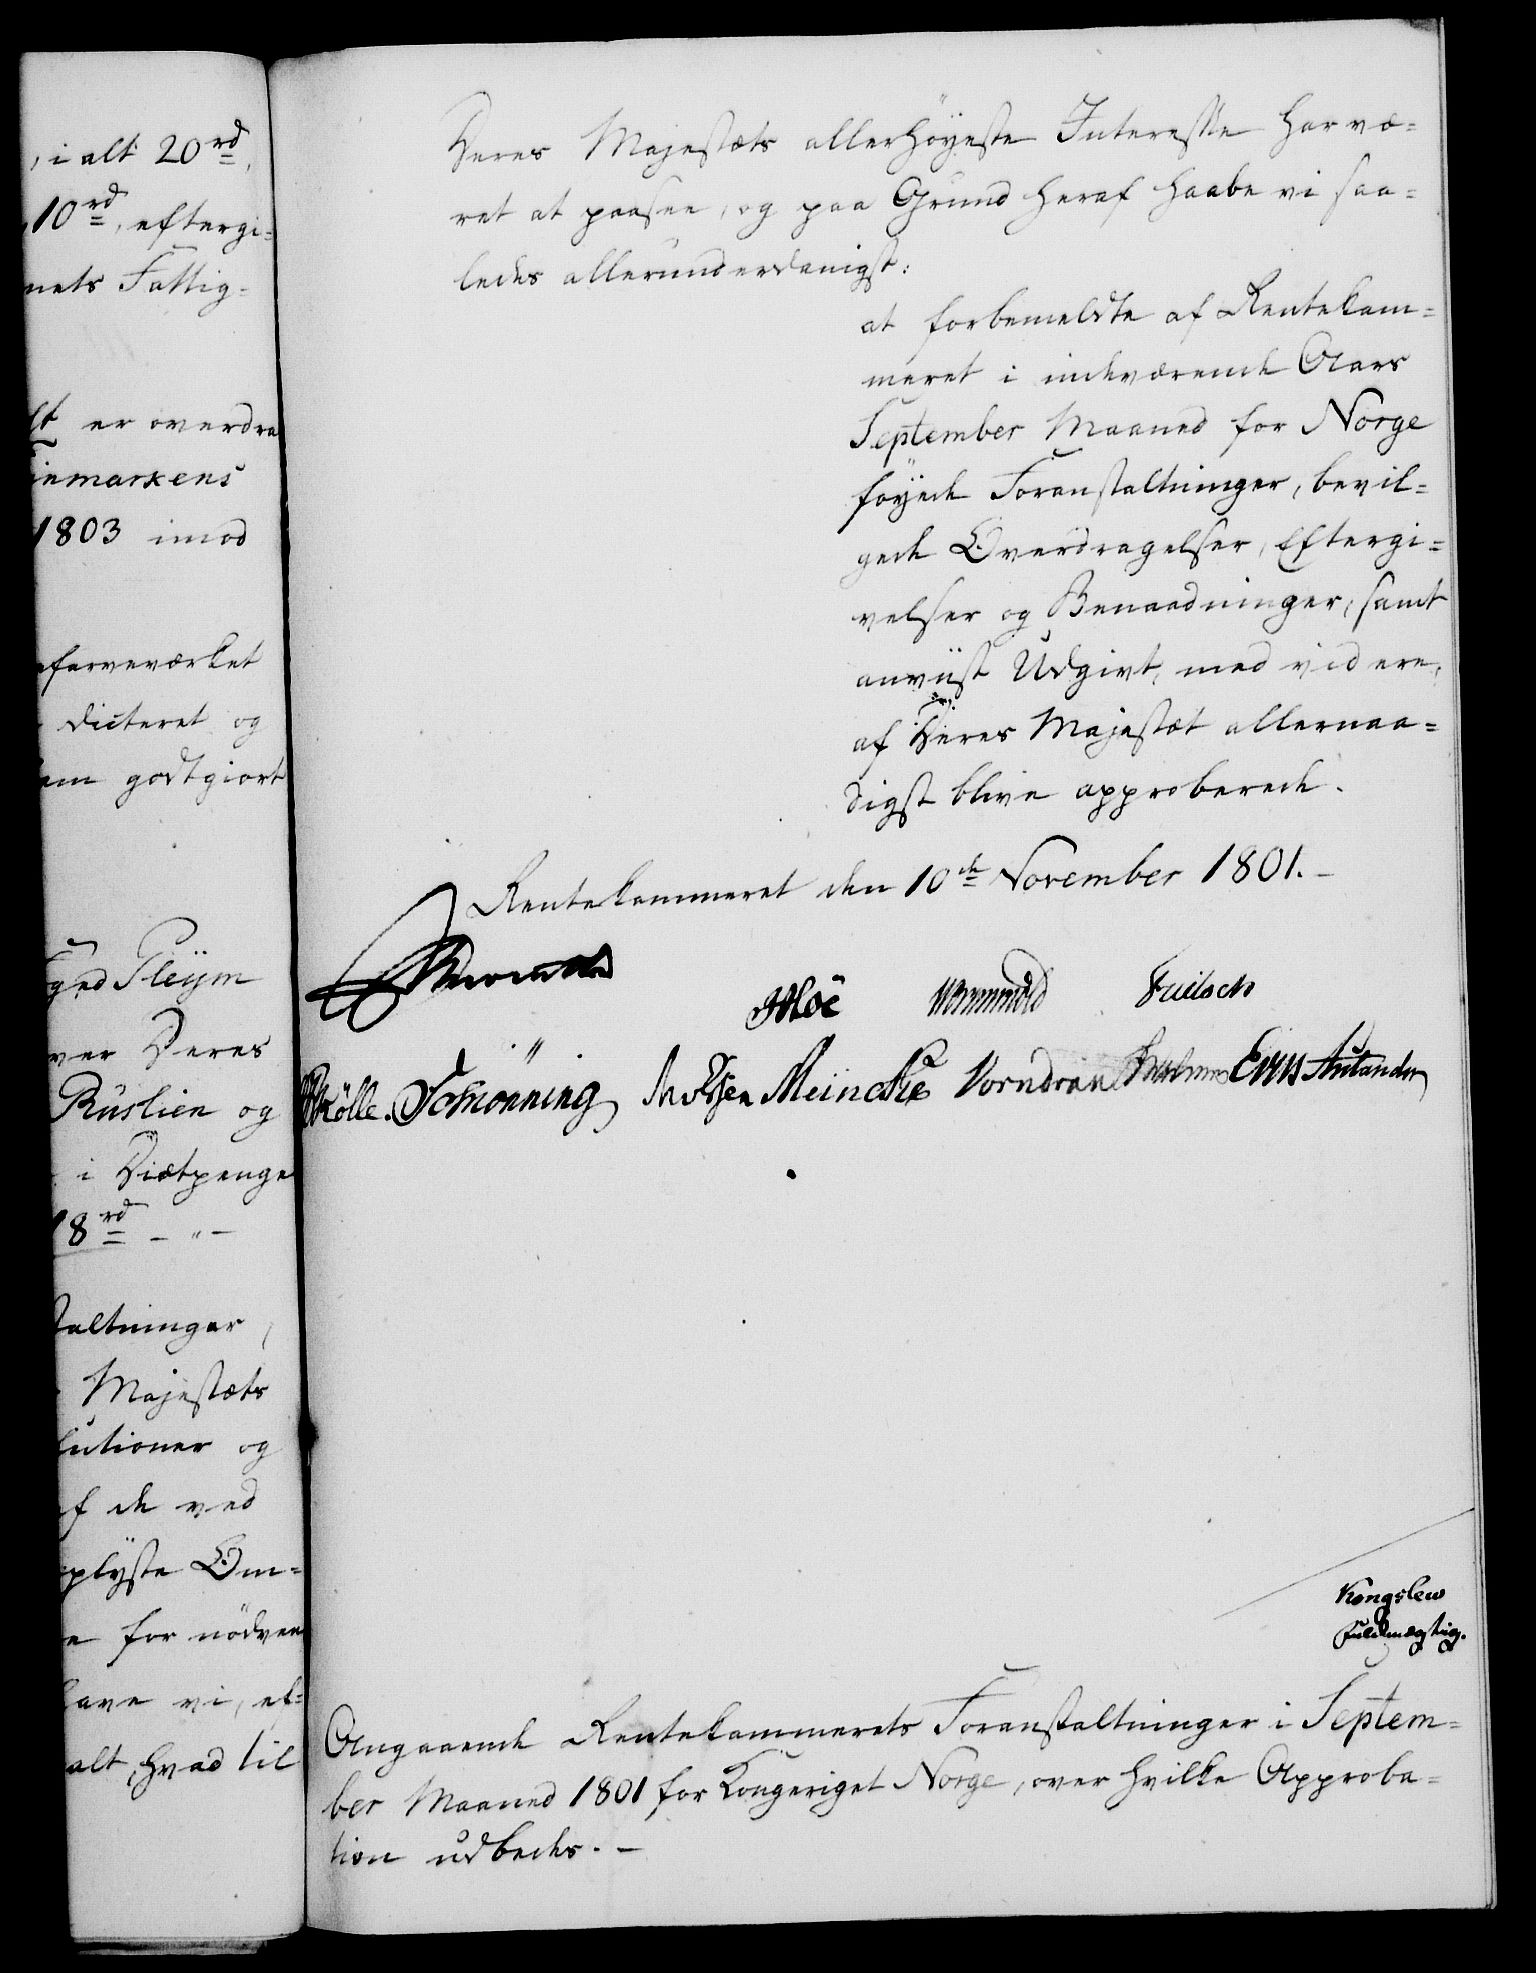 , i alt 20 rd,
10 rd, eftergi=
nets Fattig=
er overdra
inmarkens
1803 imod
farveværket
dicteret og
em godtgiort
Pleÿm
ver Deres
Ruslien og
i Diætpenge
18 rd - " -
taltninger,
Majestæts
lutioner og
f de ved
plyste Om=
e for nödven
have vi, ef=
alt, hvad til
Deres Majestæts allerhöyeste Interesse har væ=
ret at paasee, og paa Grund heraf haabe vi saa=
ledes allerunderdanigst:
at forbemeldte af Rentekam=
meret i indeværende Aars
September Maaned for Norge
föyede Foranstaltninger, bevil=
gede Overdragelser, Eftergi=
velser og Benaadninger, samt
anviist Udgivt, med videre,
af Deres Majestæt allernaa=
digst blive approberede.
Rentekammeret den 10de November 1801. -
Wormskiold
Schiönning Meincke Vorndran
Kongslew
Fuldmægtig.
Angaaende Rentekammerets Foranstaltninger i Septem=
ber Maaned 1801 for Kongeriget Norge, over hvilke Approba=
tion udbedes. -